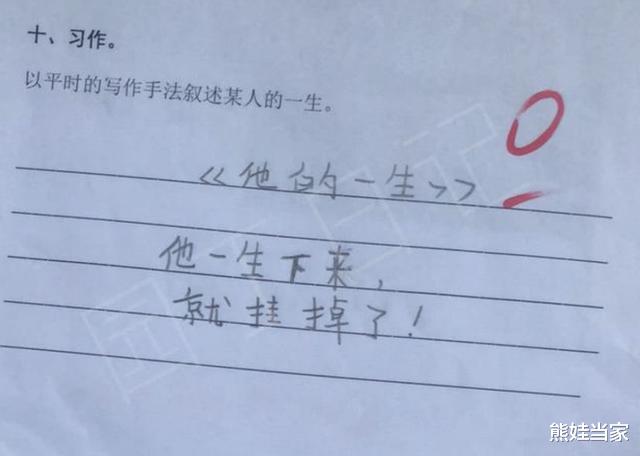 十、习作。
以平时的写作手法叙述某人的一生。
0
《他的一生》
他一生下来,
就挂掉了!
熊娃当家